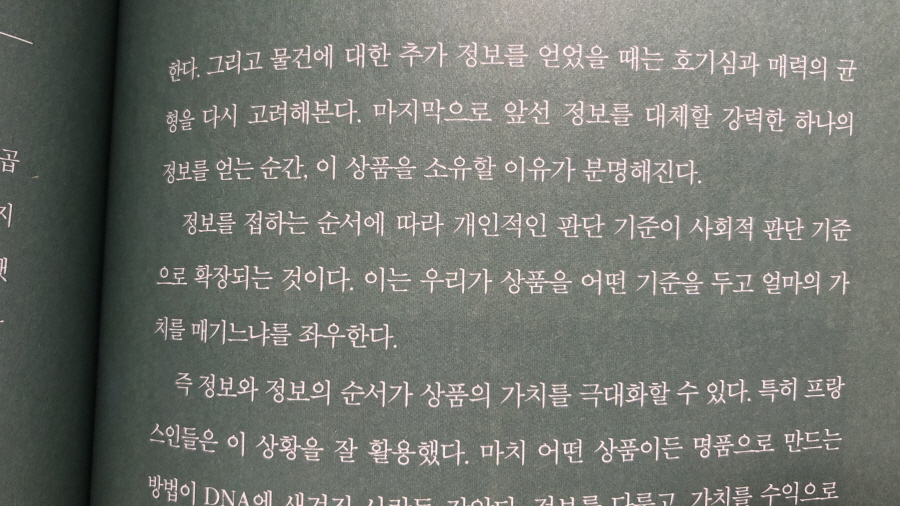 한다. 그리고 물건에 대한 추가 정보를 얻었을 때는 호기심과 매력의 균
형을 다시 고려해본다. 마지막으로 앞선 정보를 대체할 강력한 하나의
정보를 얻는 순간, 이 상품을 소유할 이유가 분명해진다.
정보를 접하는 순서에 따라 개인적인 판단 기준이 사회적 판단 기준
으로 확장되는 것이다. 이는 우리가 상품을 어떤 기준을 두고 얼마의 가
치를 매기느냐를 좌우한다.
즉 정보와 정보의 순서가 상품의 가치를 극대화할 수 있다. 특히 프랑
스인들은 이 상황을 잘 활용했다. 마치 어떤 상품이든 명품으로 만드는
방법이 DNA에 새겨진 사람들 같았다. 정보를 다루고 가치를 수익으로